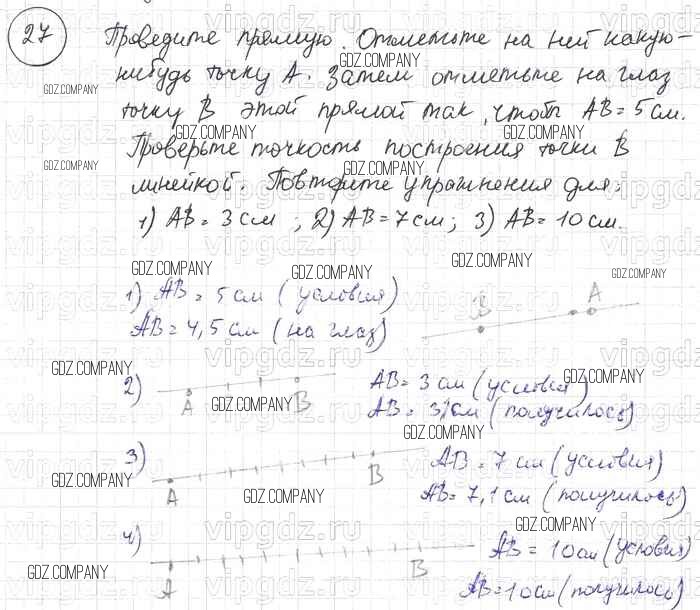 27
Проведите прямую. Отметьте на ней какую-
нибудь точку А. Затем отметьте на глаз
точку В этой прямой так, чтобы АВ = 5 см.
Проверьте точность построения точки В
линейкой. Повторите упражнения для:
1) АВ = 3 см ; 2) АВ = 7 см; 3) АВ = 10 см.
1) АВ = 5 см (условия)
АВ = 4,5 см (на глаз)
В А
2) А В
АВ = 3 см (условия)
АВ = 3,1 см (получилось)
3) А В
АВ = 7 см (условия)
АВ = 7,1 см (получилось)
4) А В
АВ = 10 см (условия)
АВ = 10 см (получилось)
GDZ.COMPANY
vipgdz.ru